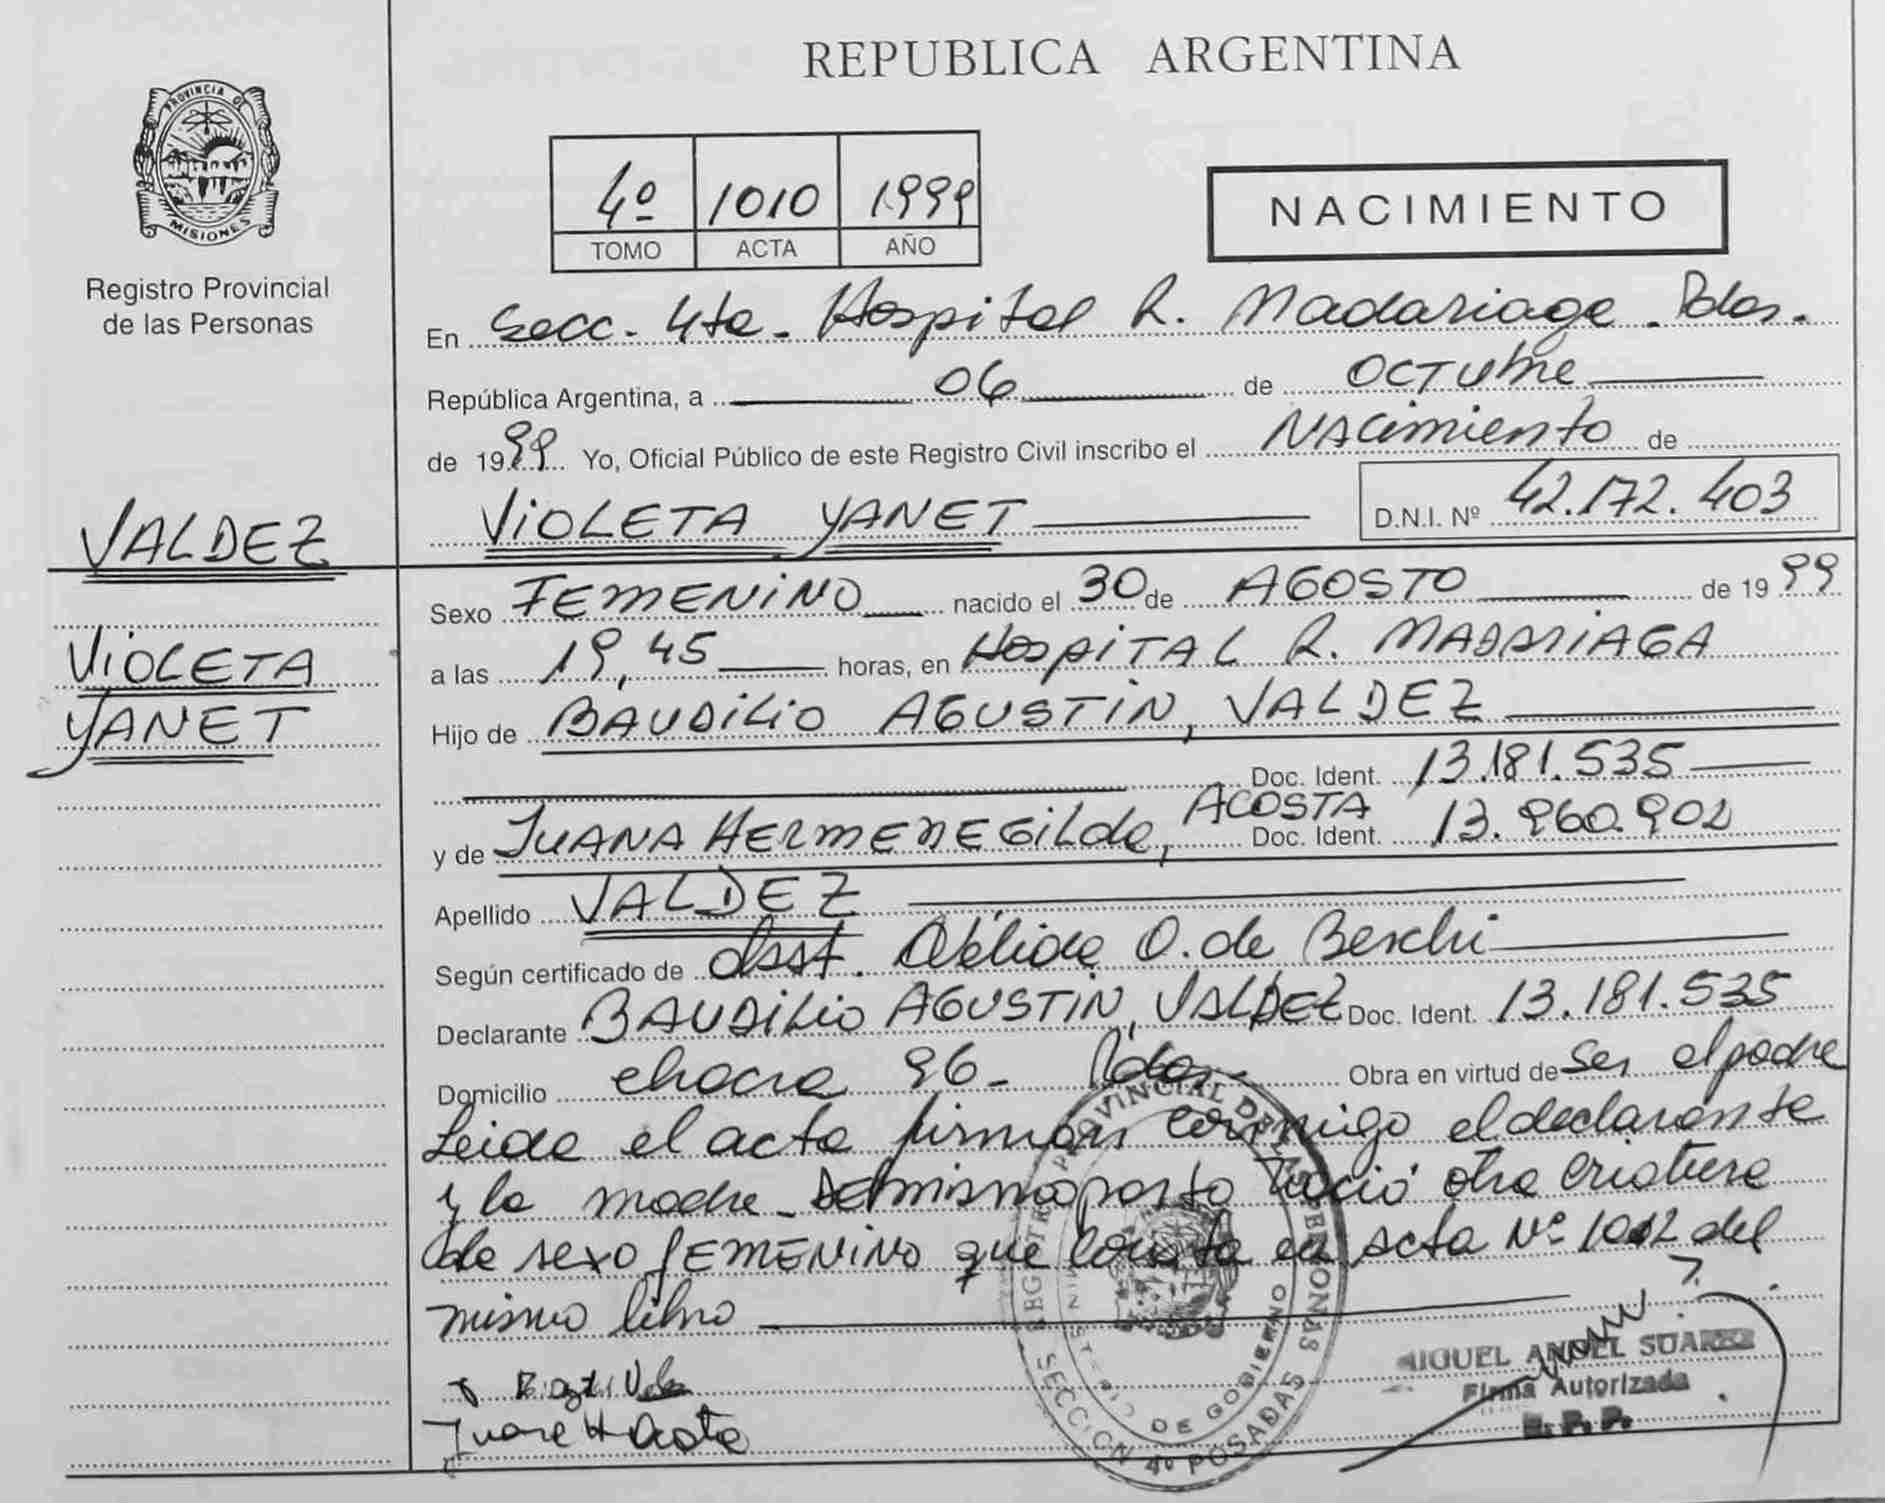 REPUBLICA ARGENTINA
PROVINCIA DE MISIONES
Registro Provincial
de las Personas
4º 1010 1999
TOMO ACTA AÑO
NACIMIENTO
En Secc. 4ta. Hospital R. Madariaga. Pdas.
República Argentina, a 06 de OCTUbre
de 1999 Yo, Oficial Público de este Registro Civil inscribo el NAcimiento de
VIOLETA YANET D.N.I. Nº 42.172.403
VALDEZ
VIOLETA
YANET
Sexo FEMENINO nacido el 30 de AGOSTO de 1999
a las 19,45 horas, en HospITAL R. MADARIAGA
Hijo de BAUDILIO AGUSTIN, VALDEZ
Doc. Ident. 13.181.535
y de JUANA HERMENEGILda, ACOSTA Doc. Ident. 13.960.902
Apellido VALDEZ
Según certificado de Obst. Nélida O. de
Declarante BAUDILIO AGUSTIN, VALDEZ Doc. Ident. 13.181.535
Domicilio chacra 96 - Pdas. Obra en virtud de ser el padre
Leida el acta firman conmigo el declarante
y la madre - DEl mismo parto Nació otra criatura
de sexo FEMENINO que consta en acta Nº 1012 del
mismo libro
Juana H Acosta
REGISTRO PROVINCIAL DE LAS PERSONAS
MINISTERIO DE GOBIERNO
SECCION 4º POSADAS
MIGUEL ANGEL SUAREZ
Firma Autorizada
R. P. P.